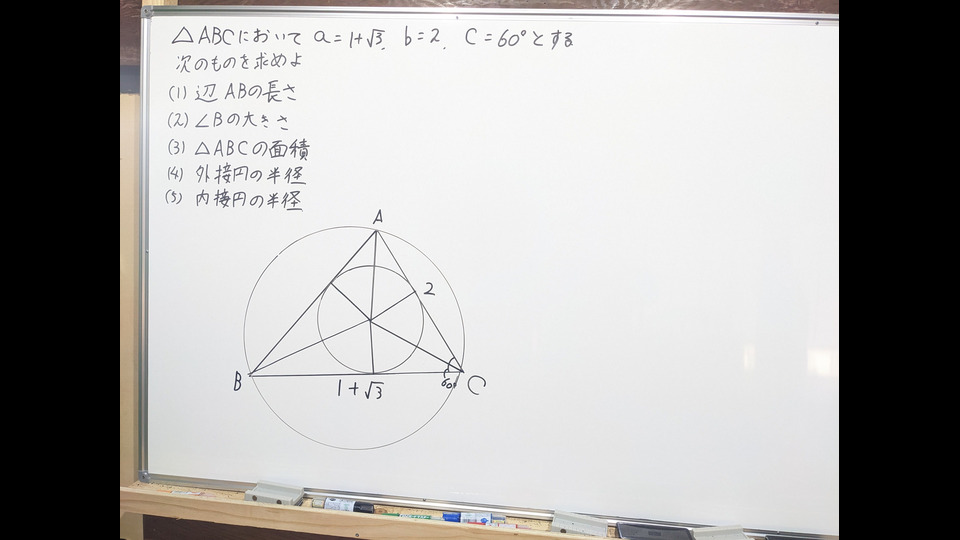 △ABCにおいて a=1+√3, b=2, C=60°とする
次のものを求めよ
(1) 辺ABの長さ
(2) ∠Bの大きさ
(3) △ABCの面積
(4) 外接円の半径
(5) 内接円の半径
A
2
B
1+√3
60°
C